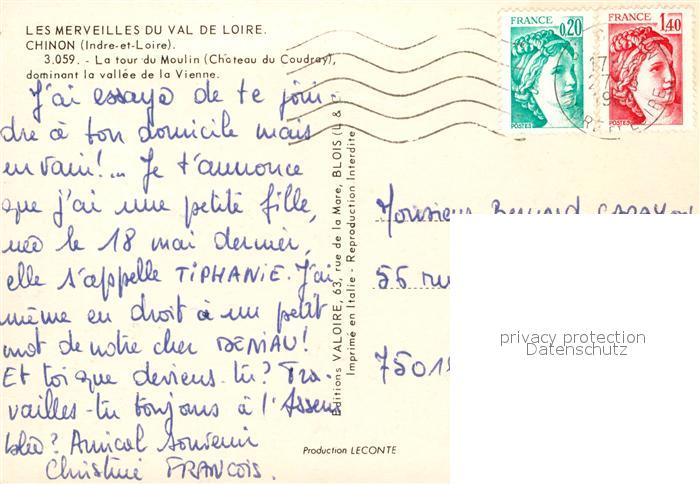 LES MERVEILLES DU VAL DE LOIRE.
CHINON (Indre-et-Loire).
3.059. - La tour du Moulin (Château du Coudray),
dominant la vallée de la Vienne.
J'ai essayé de te join-
dre à ton domicile mais
en vain!... Je t'annonce
que j'ai une petite fille,
née le 18 mai dernier,
elle s'appelle TIPHANIE. J'ai
même eu droit à un petit
mot de notre cher DENIAU!
Et toi que deviens-tu? Tra-
vailles-tu toujours à l'Assem
blée? Amical souvenir
Christine FRANCOIS.
Editions VALOIRE, 63, rue de la Mare, BLOIS (L. & C.)
Imprimé en Italie - Reproduction Interdite
Production LECONTE
FRANCE
0,20
POSTES
FRANCE
1,40
POSTES
Monsieur Bernard
55 rue
75015
privacy protection
Datenschutz